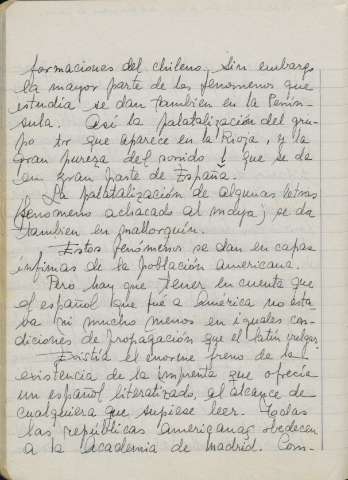 formaciones del chileno, Sin embargo
la mayor parte de los fenomenos que
estudia se dan tambien en la Penin-
sula. Así la palatalización del gru-
po tr que aparece en la Rioja, y la
gran pureza del sonido que se da
en gran parte de España.
La palatalización de algunas letras
fenomeno achacado al maya; se da
tambien en mallorquín.
Estos fenómenos se dan en capas
ínfimas de la población americana.
Pero hay que tener en cuenta que
el español que fué a América no esta-
ba ni mucho menos en iguales con-
diciones de propagación que el latín vulgar.
Existía el enorme freno de la
existencia de la imprenta que ofrecía
un español literatizado, al alcance de
cualquiera que supiese leer. Todas
las repúblicas americanas obedecen
a la Academia de Madrid. Com-